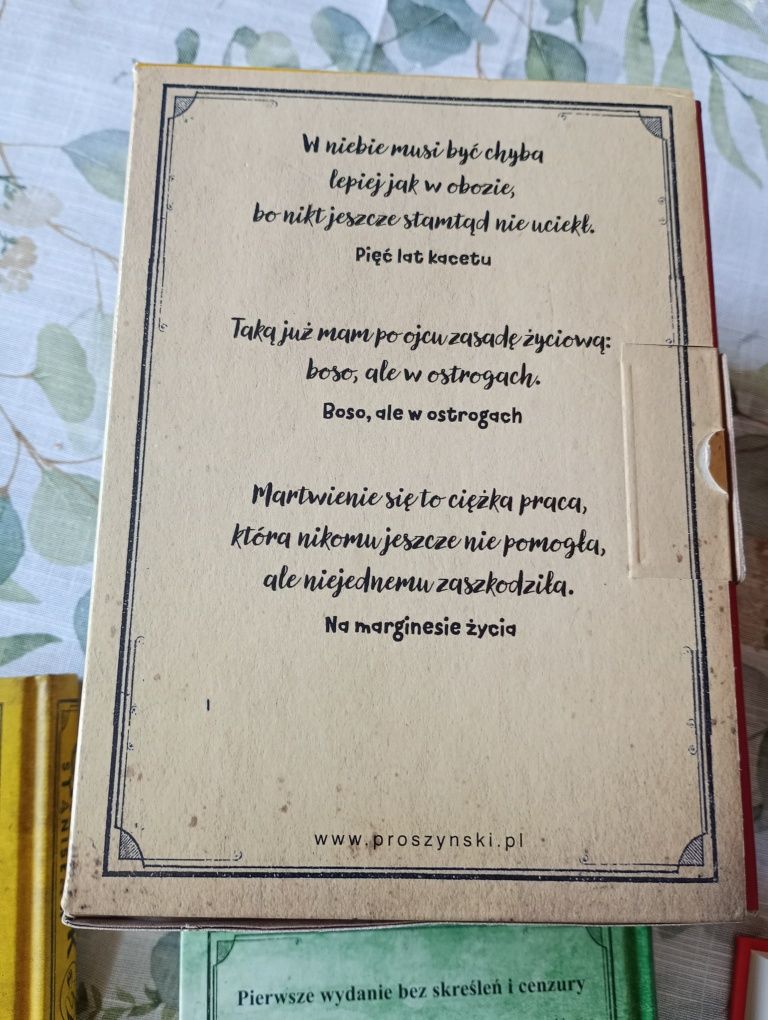 W niebie musi być chyba
lepiej jak w obozie,
bo nikt jeszcze stamtąd nie uciekł.
Pięć lat kacetu
Taką już mam po ojcu zasadę życiową:
boso, ale w ostrogach.
Boso, ale w ostrogach
Martwienie się to ciężka praca,
która nikomu jeszcze nie pomogła,
ale niejednemu zaszkodziła.
Na marginesie życia
www.proszynski.pl
Pierwsze wydanie bez skreśleń i cenzury